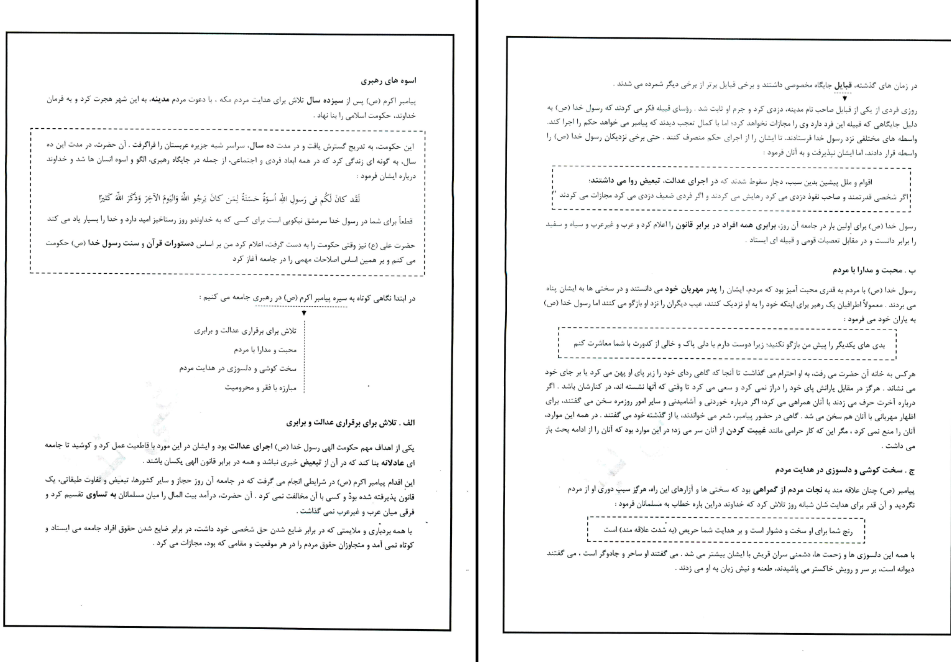 اسوه های رهبری
پیامبر اکرم (ص) پس از سیزده سال تلاش برای هدایت مردم مکه ، با دعوت مردم مدینه، به این شهر هجرت کرد و به فرمان
خداوند، حکومت اسلامی را بنا نهاد .
این حکومت، به تدریج گسترش یافت و در مدت ده سال، سراسر شبه جزیره عربستان را فراگرفت . آن حضرت، در مدت این ده
سال، به گونه ای زندگی کرد که در همه ابعاد فردی و اجتماعی، از جمله در جایگاه رهبری، الگو و اسوه انسان ها شد و خداوند
درباره ایشان فرمود :
لَقَد كانَ لَكُم في رَسولِ اللَّهِ أُسوَةٌ حَسَنَةٌ لِمَن كانَ يَرجُو اللَّهَ وَاليَومَ الآخِرَ وَذَكَرَ اللَّهَ كَثيرًا
قطعاً برای شما در رسول خدا سرمشق نیکویی است برای کسی که به خداوندو روز رستاخیز امید دارد و خدا را بسیار یاد می کند
حضرت علی (ع) نیز وقتی حکومت را به دست گرفت، اعلام کرد من بر اساس دستورات قرآن و سنت رسول خدا (ص) حکومت
می کنم و بر همین اساس اصلاحات مهمی را در جامعه آغاز کرد
در ابتدا نگاهی کوتاه به سیره پیامبر اکرم (ص) در رهبری جامعه می کنیم :
تلاش برای برقراری عدالت و برابری
محبت و مدارا با مردم
سخت کوشی و دلسوزی در هدایت مردم
مبارزه با فقر و محرومیت
الف . تلاش برای برقراری عدالت و برابری
یکی از اهداف مهم حکومت الهی رسول خدا (ص) اجرای عدالت بود و ایشان در این مورد با قاطعیت عمل کرد و کوشید تا جامعه
ای عادلانه بنا کند که در آن از تبعیض خبری نباشد و همه در برابر قانون الهی یکسان باشند .
این اقدام پیامبر اکرم (ص) در شرایطی انجام می گرفت که در جامعه آن روز حجاز و سایر کشورها، تبعیض و تفاوت طبقاتی، یک
قانون پذیرفته شده بود و کسی با آن مخالفت نمی کرد . آن حضرت، درآمد بیت المال را میان مسلمانان به تساوی تقسیم کرد و
فرقی میان عرب و غیرعرب نمی گذاشت .
با همه بردباری و ملایمتی که در برابر ضایع شدن حق شخصی خود داشت، در برابر ضایع شدن حقوق افراد جامعه می ایستاد و
کوتاه نمی آمد و متجاوزان حقوق مردم را در هر موقعیت و مقامی که بود، مجازات می کرد .
در زمان های گذشته، قبایل جایگاه مخصوصی داشتند و برخی قبایل برتر از برخی دیگر شمرده می شدند .
روزی فردی از یکی از قبایل صاحب نام مدینه، دزدی کرد و جرم او ثابت شد . رؤسای قبیله فکر می کردند که رسول خدا (ص) به
دلیل جایگاهی که قبیله این فرد دارد وی را مجازات نخواهد کرد؛ اما با کمال تعجب دیدند که پیامبر می خواهد حکم را اجرا کند.
واسطه های مختلفی نزد رسول خدا فرستادند، تا ایشان را از اجرای حکم منصرف کنند . حتی برخی نزدیکان رسول خدا (ص) را
واسطه قرار دادند، اما ایشان نپذیرفت و به آنان فرمود :
اقوام و ملل پیشین بدین سبب، دچار سقوط شدند که در اجرای عدالت، تبعیض روا می داشتند؛
اگر شخصی قدرتمند و صاحب نفوذ دزدی می کرد رهایش می کردند و اگر فردی ضعیف دزدی می کرد مجازات می کردند "
رسول خدا (ص) برای اولین بار در جامعه آن روز، برابری همه افراد در برابر قانون را اعلام کرد و عرب و غیرعرب و سیاه و سفید
را برابر دانست و در مقابل تعصبات قومی و قبیله ای ایستاد .
ب . محبت و مدارا با مردم
رسول خدا (ص) با مردم به قدری محبت آمیز بود که مردم، ایشان را پدر مهربان خود می دانستند و در سختی ها به ایشان پناه
می بردند . معمولاً اطرافیان یک رهبر برای اینکه خود را به او نزدیک کنند، عیب دیگران را نزد او بازگو می کنند اما رسول خدا (ص)
به یاران خود می فرمود :
بدی های یکدیگر را پیش من بازگو نکنید؛ زیرا دوست دارم با دلی پاک و خالی از کدورت با شما معاشرت کنم
هرکس به خانه آن حضرت می رفت، به او احترام می گذاشت تا آنجا که گاهی ردای خود را زیر پای او پهن می کرد یا بر جای خود
می نشاند . هرگز در مقابل یارانش پای خود را دراز نمی کرد و سعی می کرد تا وقتی که آنها نشسته اند، در کنارشان باشد . اگر
درباره آخرت حرف می زدند با آنان همراهی می کرد؛ اگر درباره خوردنی و آشامیدنی و سایر امور روزمره سخن می گفتند، برای
اظهار مهربانی با آنان هم سخن می شد . گاهی در حضور پیامبر، شعر می خواندند، یا از گذشته خود می گفتند . در همه این موارد،
آنان را منع نمی کرد ، مگر این که کار حرامی مانند غیبت کردن از آنان سر می زد؛ در این موارد بود که آنان را از ادامه بحث باز
می داشت .
ج . سخت کوشی و دلسوزی در هدایت مردم
پیامبر (ص) چنان علاقه مند به نجات مردم از گمراهی بود که سختی ها و آزارهای این راه، هرگز سبب دوری او از مردم
نگردید و آن قدر برای هدایت شان شبانه روز تلاش کرد که خداوند دراین باره خطاب به مسلمانان فرمود :
رنج شما برای او سخت و دشوار است و بر هدایت شما حریص (به شدت علاقه مند) است
با همه این دلسوزی ها و زحمت ها، دشمنی سران قریش با ایشان بیشتر می شد . می گفتند او ساحر و جادوگر است ، می گفتند
دیوانه است، بر سر و رویش خاکستر می پاشیدند، طعنه و نیش زبان به او می زدند .